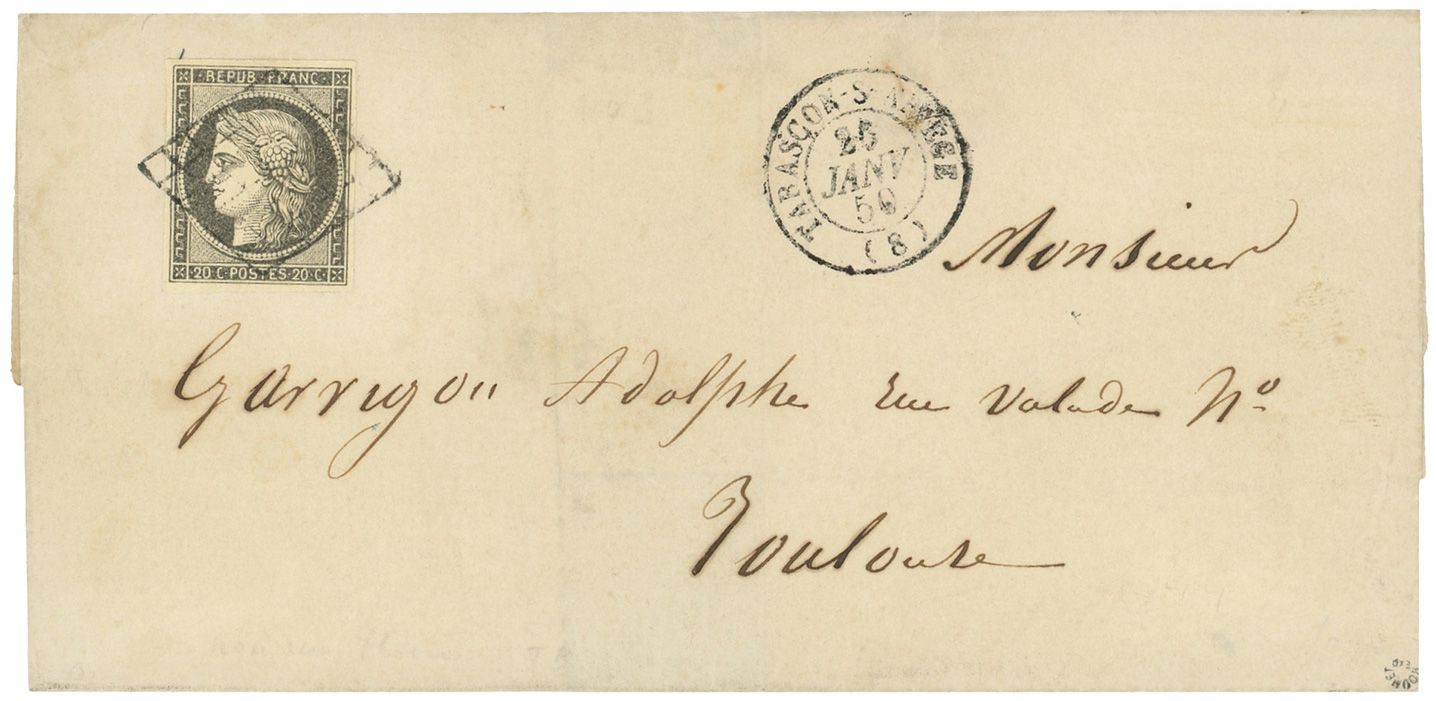 REPUB·FRANC·
20·C·POSTES·20·C·
TARASCON-S-ARIEGE
25
JANV
50
(8)
Monsieur
Garrigou Adolphe rue Valade Nº
Toulouse